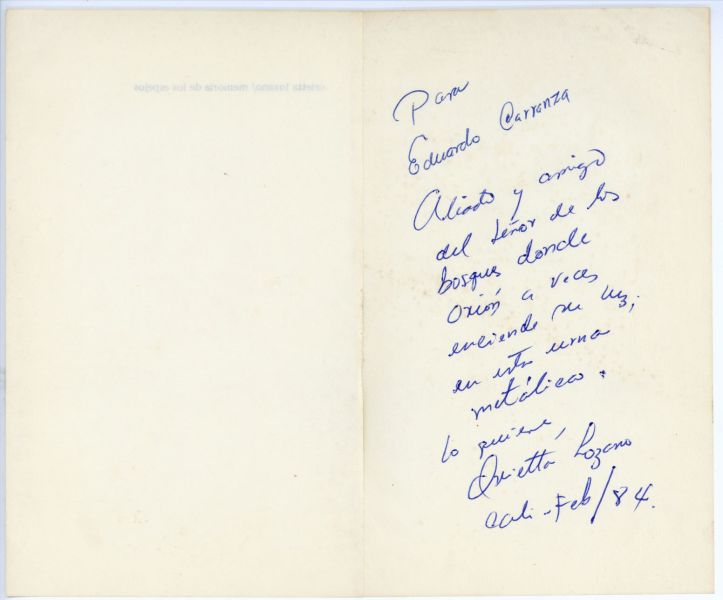 orietta lozano/ memoria de los espejos
Para
Eduardo Carranza
Aliado y amigo
del señor de los
bosques donde
orión a veces
enciende su luz,
en esta urna
metálica.
lo quiere,
Orietta Lozano
Cali-Feb/84.